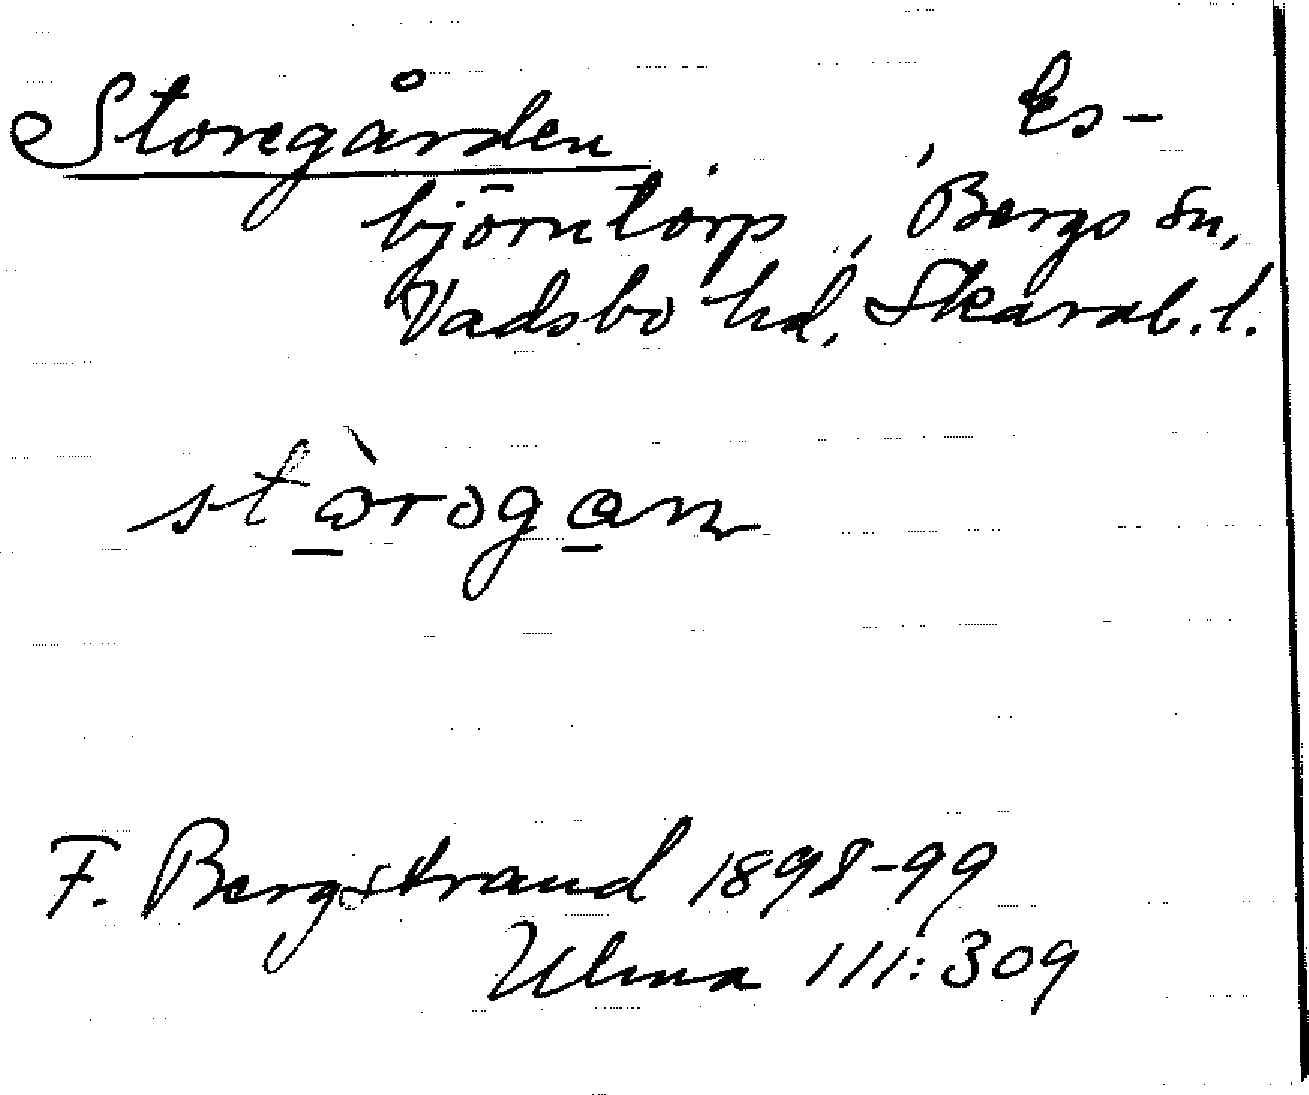 Storegården , Es-
björntorp, Bergs sn,
Vadsbo hd, Skarab. l.
stòrogan
F. Bergstrand 1898-99
Ulma 111:309